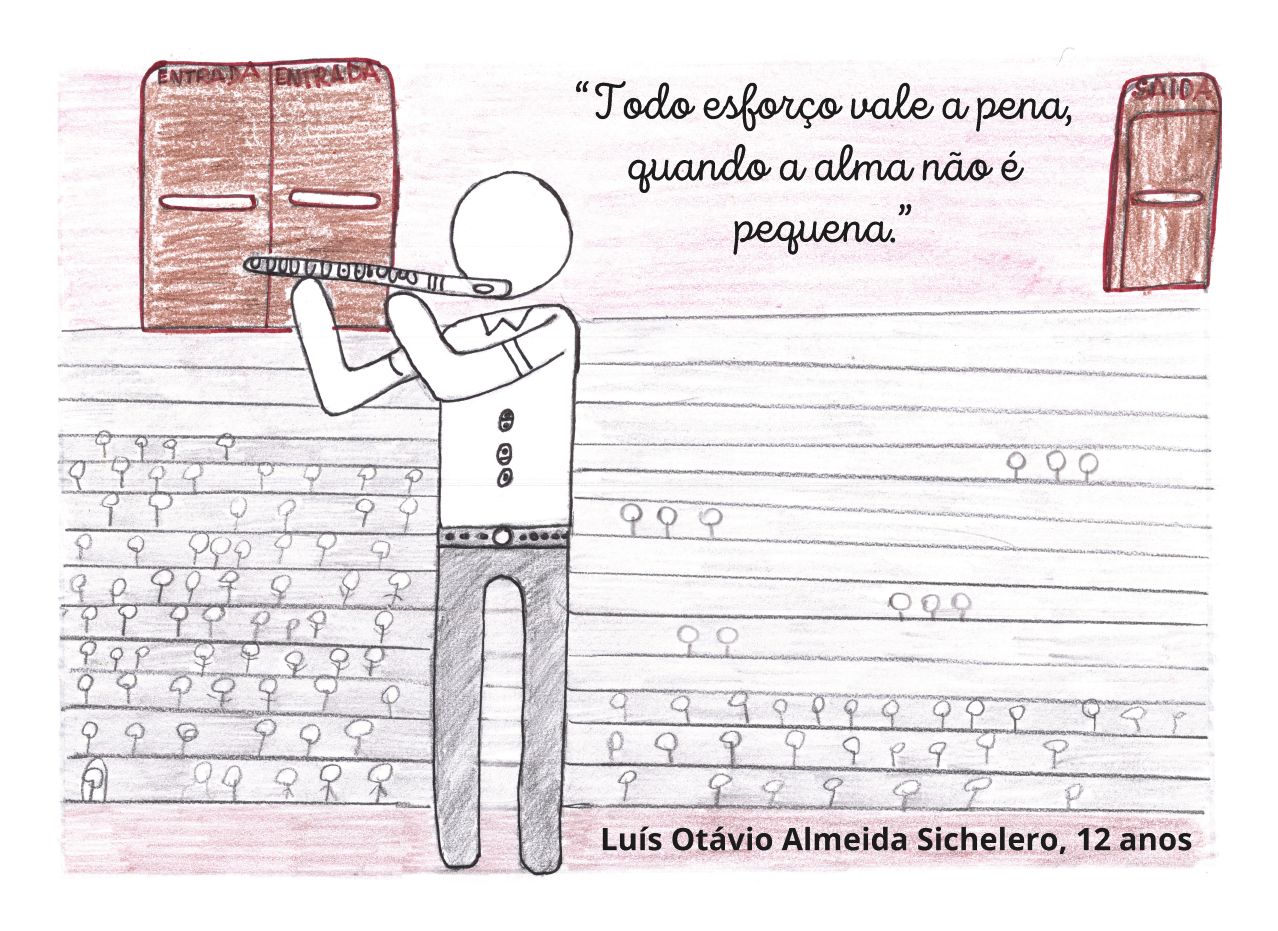 ENTRADA ENTRADA
SAIDA
“Todo esforço vale a pena,
quando a alma não é
pequena.”
Luís Otávio Almeida Sichelero, 12 anos